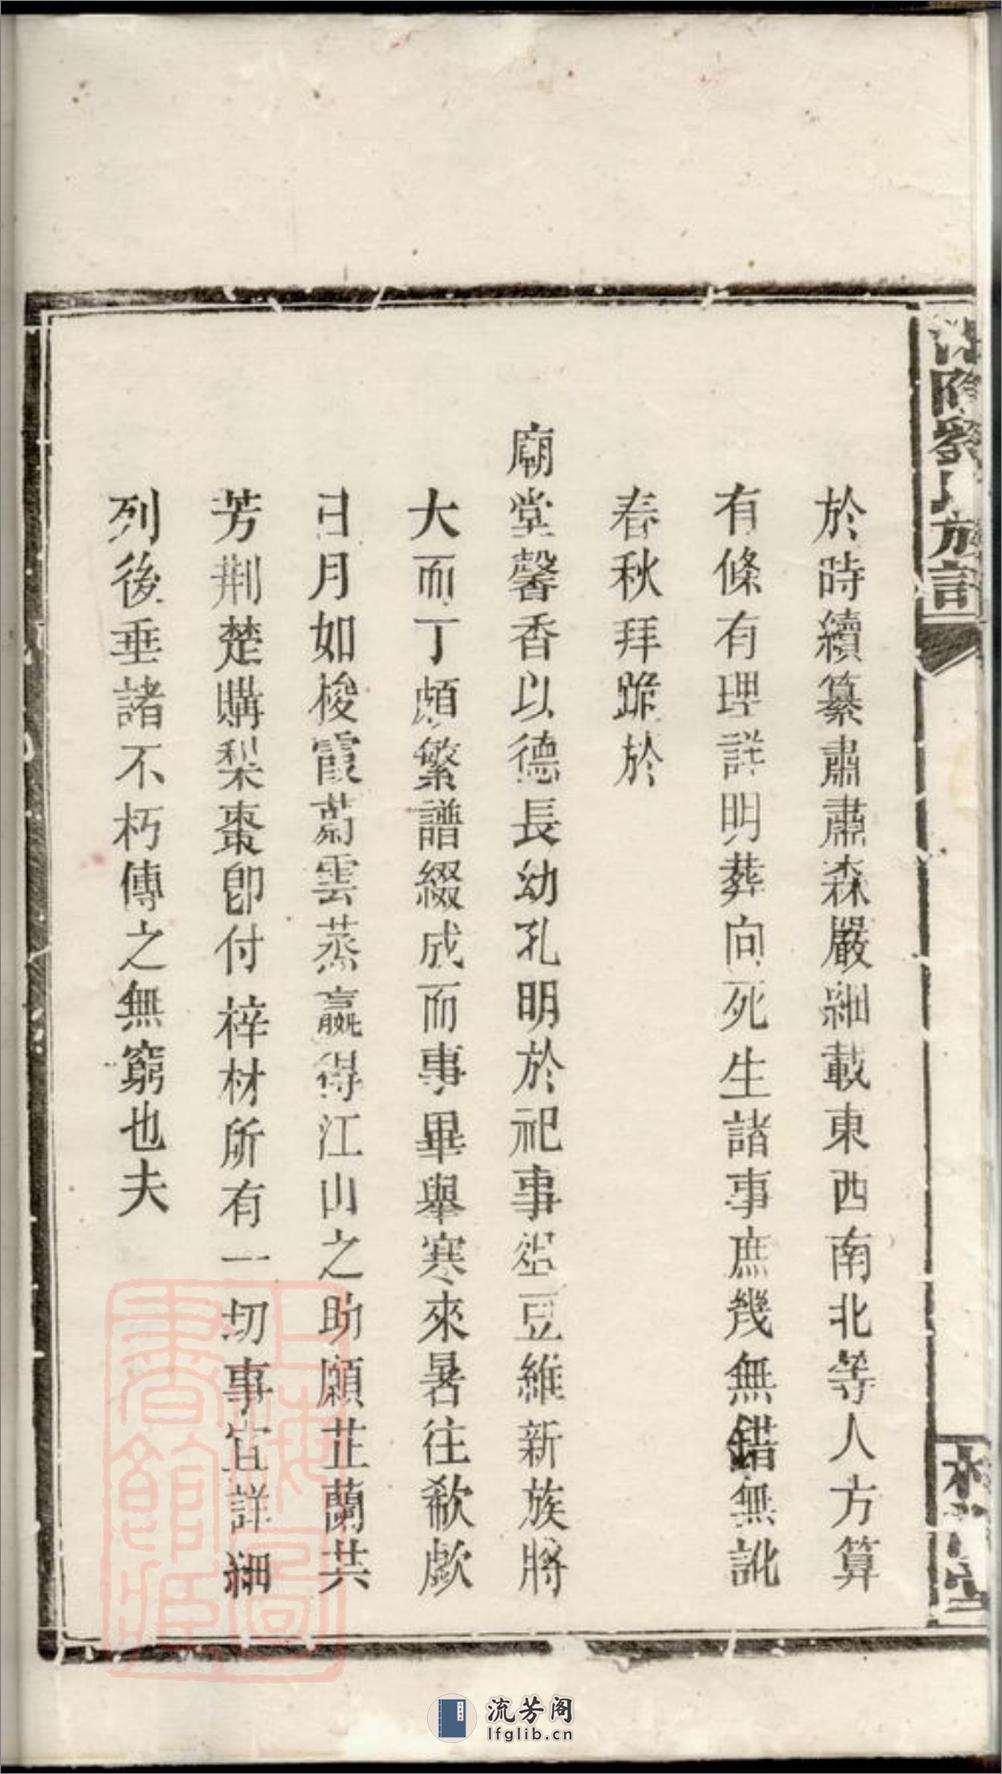 於時續纂肅肅森嚴細載東西南北等人方算
有條有理詳明葬向死生諸事庶幾無錯無訛
春秋拜跪於
廟堂馨香以德長幼孔明於祀事俎豆維新族將
大而丁頗繁譜綴成而事畢舉寒來暑往欷歔
日月如梭霞蔚雲蒸贏得江山之助願芷蘭共
芳荆楚購梨棗卽付梓材所有一切事宜詳細
列後垂諸不朽傳之無窮也夫
上海圖書館藏
流芳阁
lfglib.cn